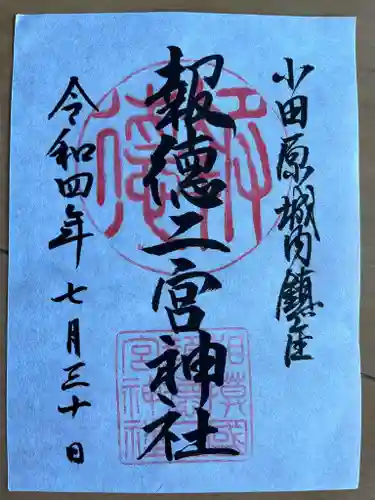 小田原城内鎮座
報徳二宮神社
令和四年七月三十日